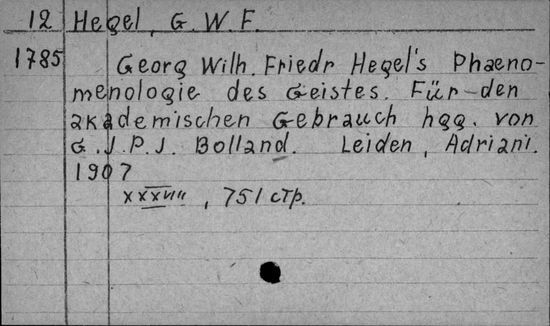 12 Hegel, G. W. F.
1785 Georg Wilh. Friedr Hegel's Phaeno-
menologie des Geistes. Für den
akademischen Gebrauch hgg. von
G. J. P. J. Bolland. Leiden, Adriani.
1907
XXXVIII, 751 стр.